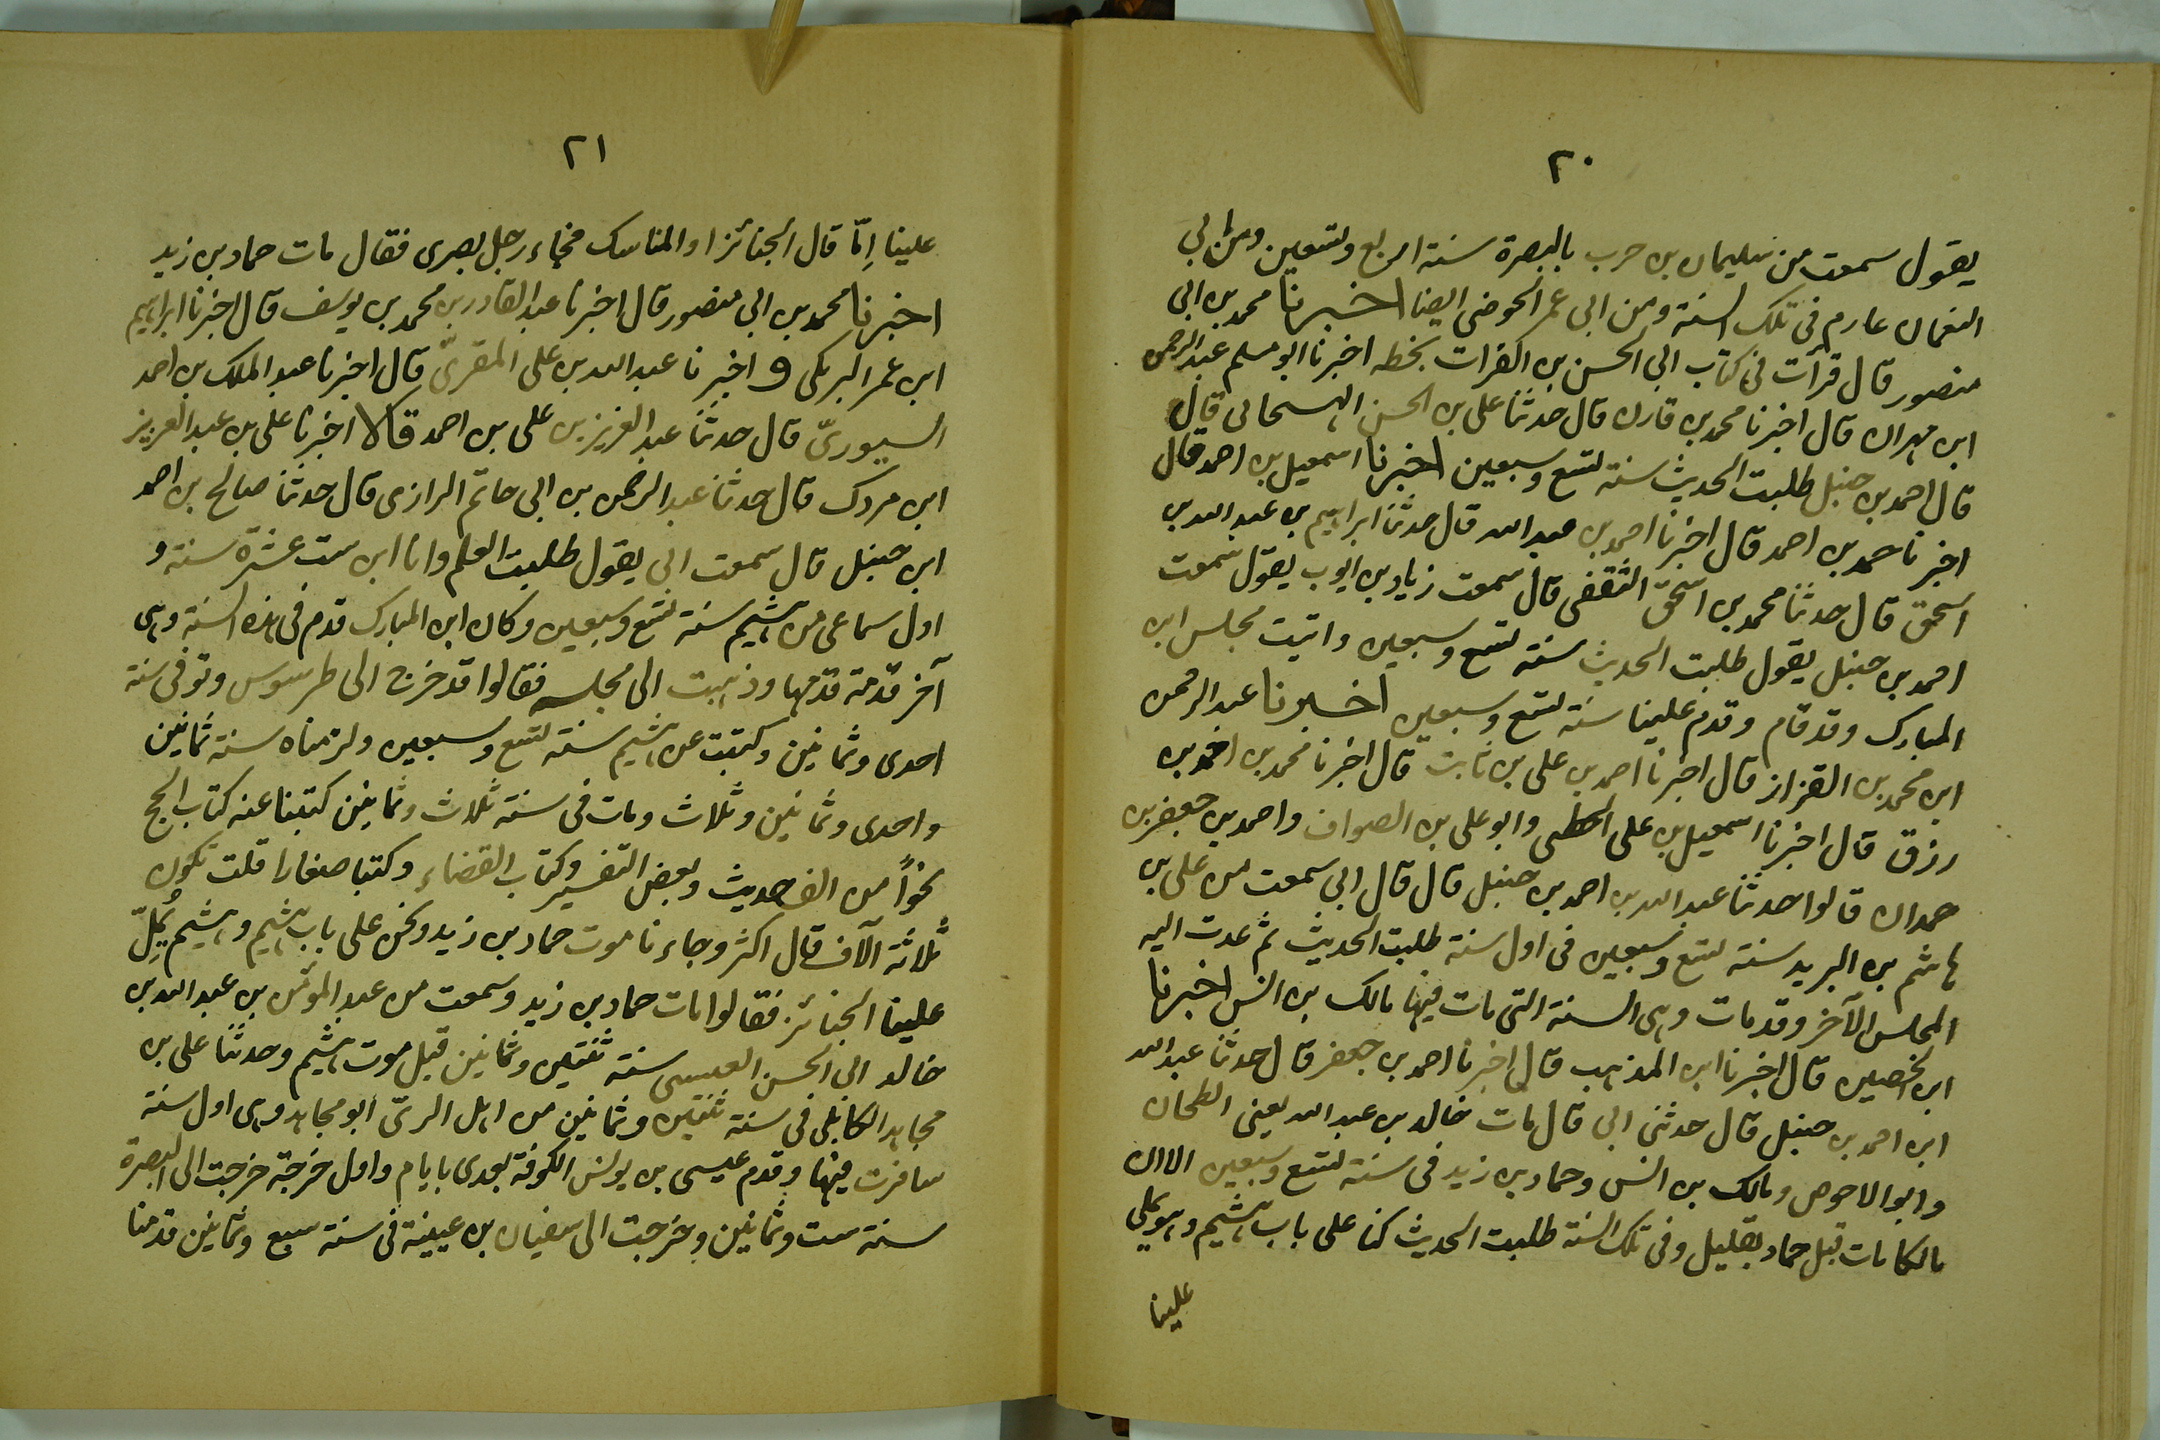 ٢٠
يقول سمعت من سليمان بن حرب بالبصرة سنة اربع وتسعين ومن ابى
النعمان عارم فى تلك السنة ومن ابى عمر الحوضى ايضا اخبرنا محمد بن ابى
منصور قال قرأت فى كتاب ابى الحسن بن الفرات بخطه اخبرنا ابو مسلم عبد الرحمن
ابن مهران قال اخبرنا محمد بن قارن قال حدثنا على بن الحسن الهسحانى قال
قال احمد بن حنبل طلبت الحديث سنة تسع وسبعين اخبرنا اسمعيل بن احمد قال
اخبرنا حمد بن احمد قال اخبرنا احمد بن عبد الله قال حدثنا ابراهيم بن عبد الله بن
اسحق قال حدثنا محمد بن اسحق الثقفى قال سمعت زياد بن ايوب يقول سمعت
احمد بن حنبل يقول طلبت الحديث سنة تسع وسبعين واتيت مجلس ابن
المبارك وقد قام وقدم علينا سنة تسع وسبعين اخبرنا عبد الرحمن
ابن محمد بن القزاز قال اخبرنا احمد بن على بن ثابت قال اخبرنا محمد بن احمد بن
رزق قال اخبرنا اسمعيل بن على الخطبى وابو على بن الصواف واحمد بن جعفر بن
حمدان قالوا حدثنا عبد الله بن احمد بن حنبل قال قال ابى سمعت من على بن
هاشم بن البريد سنة تسع وسبعين فى اول سنة طلبت الحديث ثم عدت اليه
المجلس الآخر وقد مات وهى السنة التى مات فيها مالك بن انس اخبرنا
ابن الحصين قال اخبرنا ابن المذهب قال اخبرنا احمد بن جعفر قال حدثنا عبد الله
ابن احمد بن حنبل قال حدثنى ابى قال مات خالد بن عبد الله يعنى الطحان
وابو الاحوص ومالك بن انس وحماد بن زيد فى سنة تسع وسبعين الا ان
مالكا مات قبل حماد بقليل وفى تلك السنة طلبت الحديث كنا على باب هشيم وهو يملى
علينا
٢١
علينا اِمّا قال الجنائز او المناسك فجاء رجل بصرى فقال مات حماد بن زيد
اخبرنا محمد بن ابى منصور قال اخبرنا عبد القادر بن محمد بن يوسف قال اخبرنا ابراهيم
ابن عمر البرمكى و اخبرنا عبد الله بن على المقرىّ قال اخبرنا عبد الملك بن احمد
السيورىّ قال حدثنا عبد العزيز بن على بن احمد قالا اخبرنا على بن عبد العزيز
ابن مردك قال حدثنا عبد الرحمن بن ابى حاتم الرازى قال حدثنا صالح بن احمد
ابن حنبل قال سمعت ابى يقول طلبت العلم وانا ابن ست عشرة سنة و
اول سماعى من هشيم سنة تسع وسبعين وكان ابن المبارك قدم فى هذه السنة وهى
آخر قدمة قدمها وذهبت الى مجلسه فقالوا قد خرج الى طرسوس وتوفى سنة
احدى وثمانين وكتبت عن هشيم سنة تسع وسبعين ولزمناه سنة ثمانين
واحدى وثمانين وثلاث ومات فى سنة ثلاث وثمانين كتبنا عنه كتاب الحج
نحوًا من الف حديث وبعض التفسير وكتاب القضاء وكتبا صغارا قلت تكون
ثلاثة آلاف قال اكثر وجاءنا موت حماد بن زيد ونحن على باب هشيم وهشيم يُمِلّ
علينا الجنائز فقالوا مات حماد بن زيد وسمعت من عبد المؤمن بن عبد الله بن
خالد ابى الحسن العبسى سنة ثنتين وثمانين قبل موت هشيم وحدثنا على بن
مجاهد الكابلى فى سنة ثنتين وثمانين من اهل الرىّ ابو مجاهد وهى اول سنة
سافرت فيها وقدم عيسى بن يونس الكوفة بعدى بايام واول خرجة خرجت الى البصرة
سنة ست وثمانين وخرجت الى سفيان بن عيينة فى سنة سبع وثمانين قدمنا